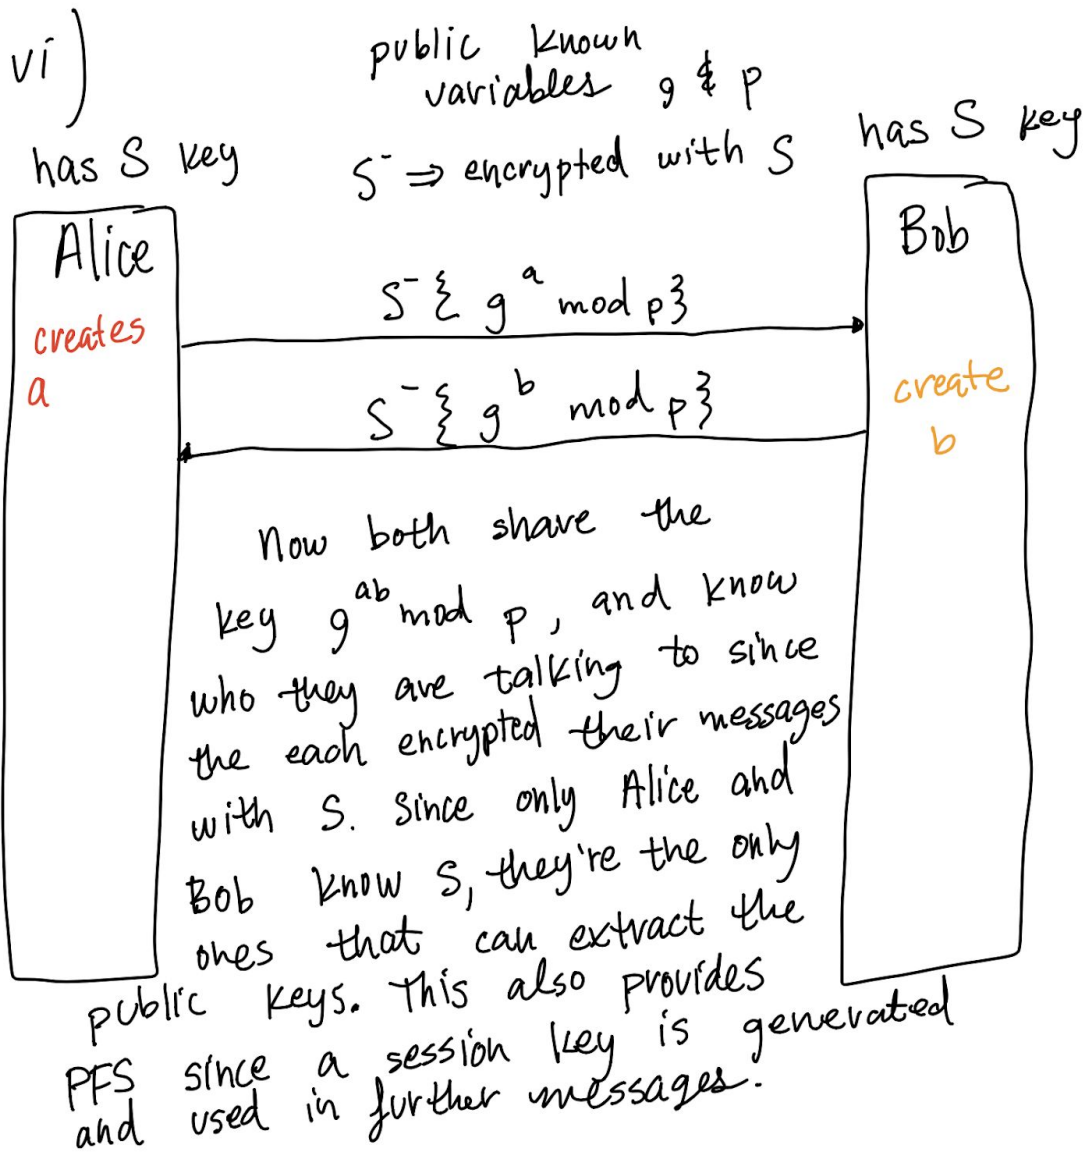 vi)
public known
variables g & p
has S key
has S key
S⁻ ⇒ encrypted with S
Alice
Bob
S⁻{ g^a mod p}
creates
a
create
b
S⁻{ g^b mod p}
Now both share the
key g^ab mod p, and know
who they are talking to since
the each encrypted their messages
with S. Since only Alice and
Bob know S, they're the only
ones that can extract the
public keys. This also provides
PFS since a session key is generated
and used in further messages.